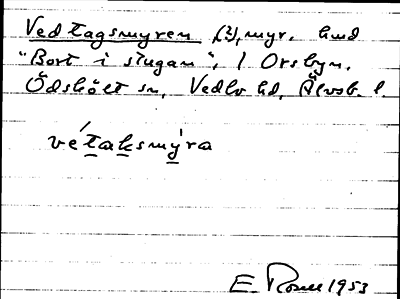 Vedtagsmyren (2), myr, hmd
"Bort i stugan", 1 Orsbyn,
Ödskölt sn, Vedbo hd, Älvsb. l.
vé'taksmỳra
E Rosell 1953